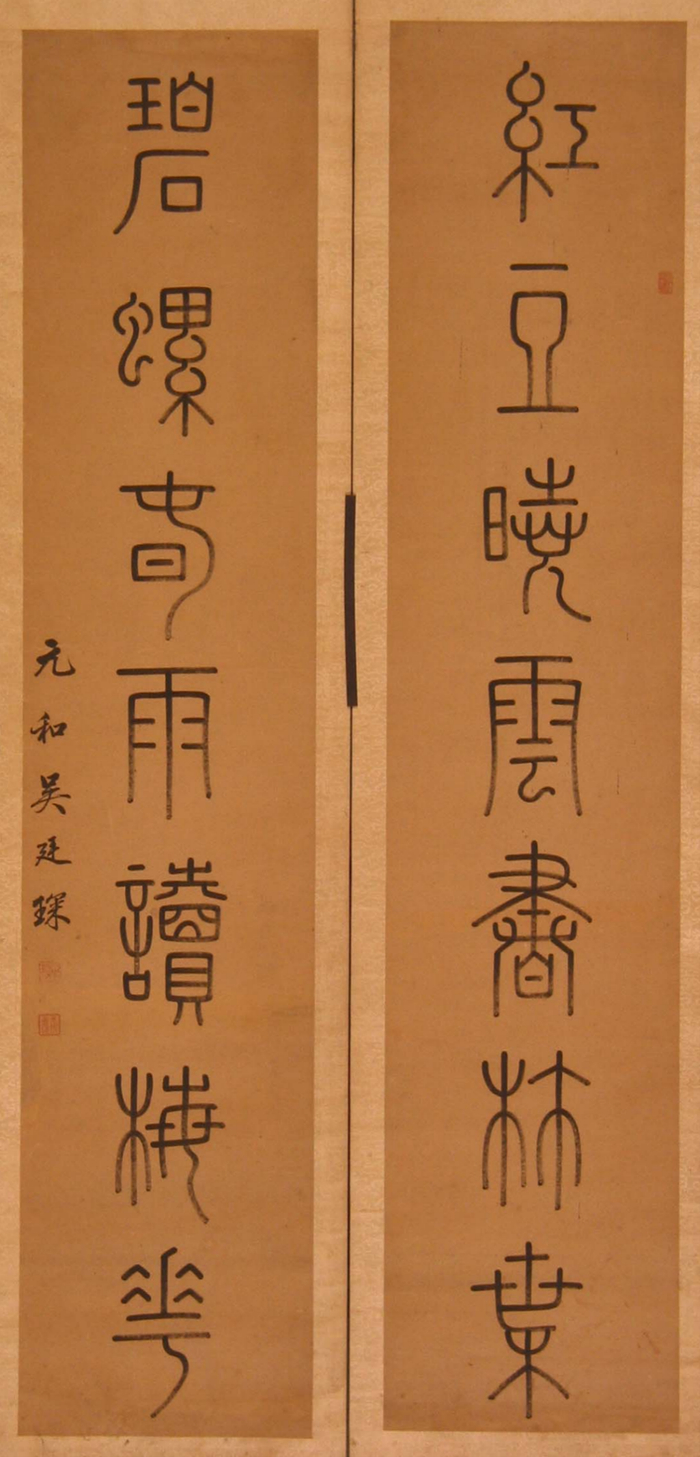 紅豆曉雲書柿葉
碧螺春雨讀梅花
元和吳廷琛